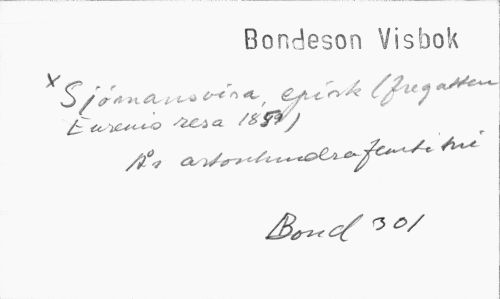 Bondeson Visbok
x Sjömansvisa, episk (fregatten
Eugenies resa 1859)
År artonhundrafemtitre
Bond 301